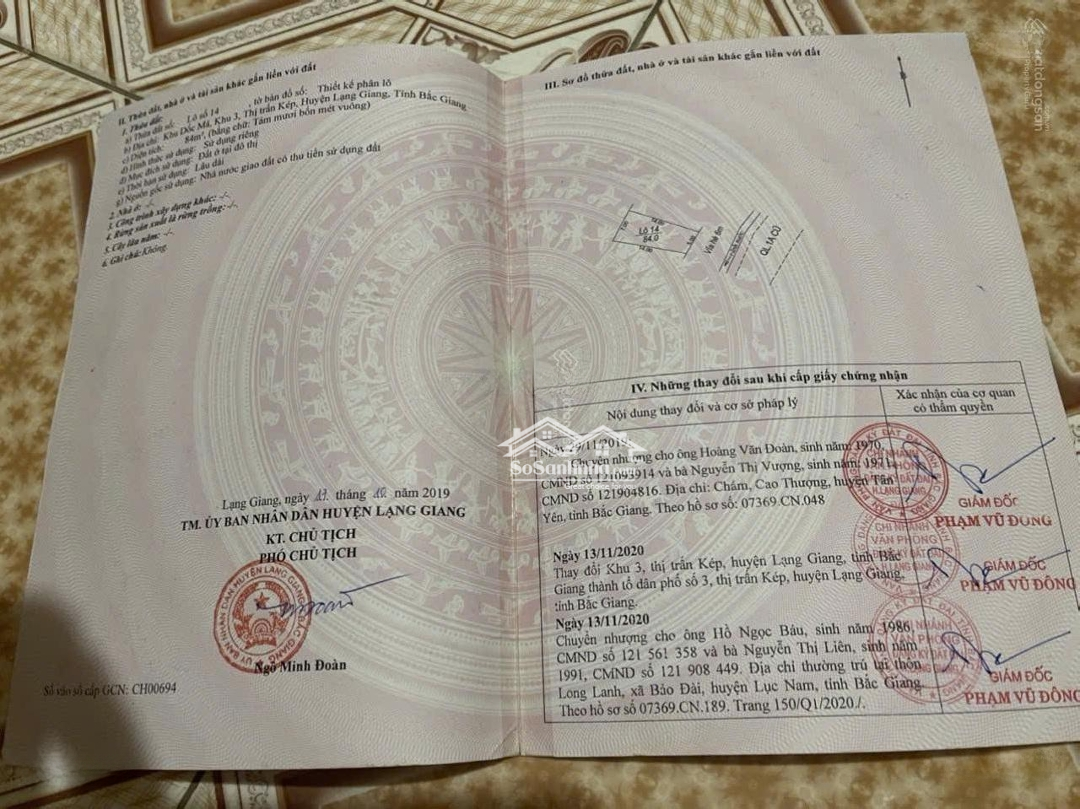 II. Thửa đất, nhà ở và tài sản khác gắn liền với đất
1. Thửa đất:
a) Thửa đất số: Lô số 14 , tờ bản đồ số: Thiết kế phân lô
b) Địa chỉ: Khu Dốc Má, Khu 3, Thị trấn Kép, Huyện Lạng Giang, Tỉnh Bắc Giang
c) Diện tích: 84m², (bằng chữ: Tám mươi bốn mét vuông)
d) Hình thức sử dụng: Sử dụng riêng
đ) Mục đích sử dụng: Đất ở tại đô thị
e) Thời hạn sử dụng: Lâu dài
g) Nguồn gốc sử dụng: Nhà nước giao đất có thu tiền sử dụng đất
2. Nhà ở: -/-
3. Công trình xây dựng khác: -/-
4. Rừng sản xuất là rừng trồng: -/-
5. Cây lâu năm: -/-
6. Ghi chú: Không.
Lạng Giang, ngày tháng năm 2019
TM. ỦY BAN NHÂN DÂN HUYỆN LẠNG GIANG
KT. CHỦ TỊCH
PHÓ CHỦ TỊCH
Ngô Minh Đoàn
Số vào sổ cấp GCN: CH00694
III. Sơ đồ thửa đất, nhà ở và tài sản khác gắn liền với đất
Lô 14
84.0
Vỉa hè 8m
QL 1A CŨ
IV. Những thay đổi sau khi cấp giấy chứng nhận
Nội dung thay đổi và cơ sở pháp lý
Xác nhận của cơ quan
có thẩm quyền
Ngày 29/11/2019
Chuyển nhượng cho ông Hoàng Văn Đoàn, sinh năm: 1970,
CMND số 121093914 và bà Nguyễn Thị Vượng, sinh năm: 1971
CMND số 121904816. Địa chỉ: Chám, Cao Thượng, huyện Tân
Yên, tỉnh Bắc Giang. Theo hồ sơ số: 07369.CN.048
GIÁM ĐỐC
PHẠM VŨ ĐÔNG
Ngày 13/11/2020
Thay đổi Khu 3, thị trấn Kép, huyện Lạng Giang, tỉnh Bắc
Giang thành tổ dân phố số 3, thị trấn Kép, huyện Lạng Giang,
tỉnh Bắc Giang.
GIÁM ĐỐC
PHẠM VŨ ĐÔNG
Ngày 13/11/2020
Chuyển nhượng cho ông Hồ Ngọc Báu, sinh năm 1986
CMND số 121 561 358 và bà Nguyễn Thị Liên, sinh năm
1991, CMND số 121 908 449. Địa chỉ thường trú tại thôn
Long Lanh, xã Bảo Đài, huyện Lục Nam, tỉnh Bắc Giang.
Theo hồ sơ số 07369.CN.189. Trang 150/Q1/2020./.
GIÁM ĐỐC
PHẠM VŨ ĐÔNG
SoSanhNha